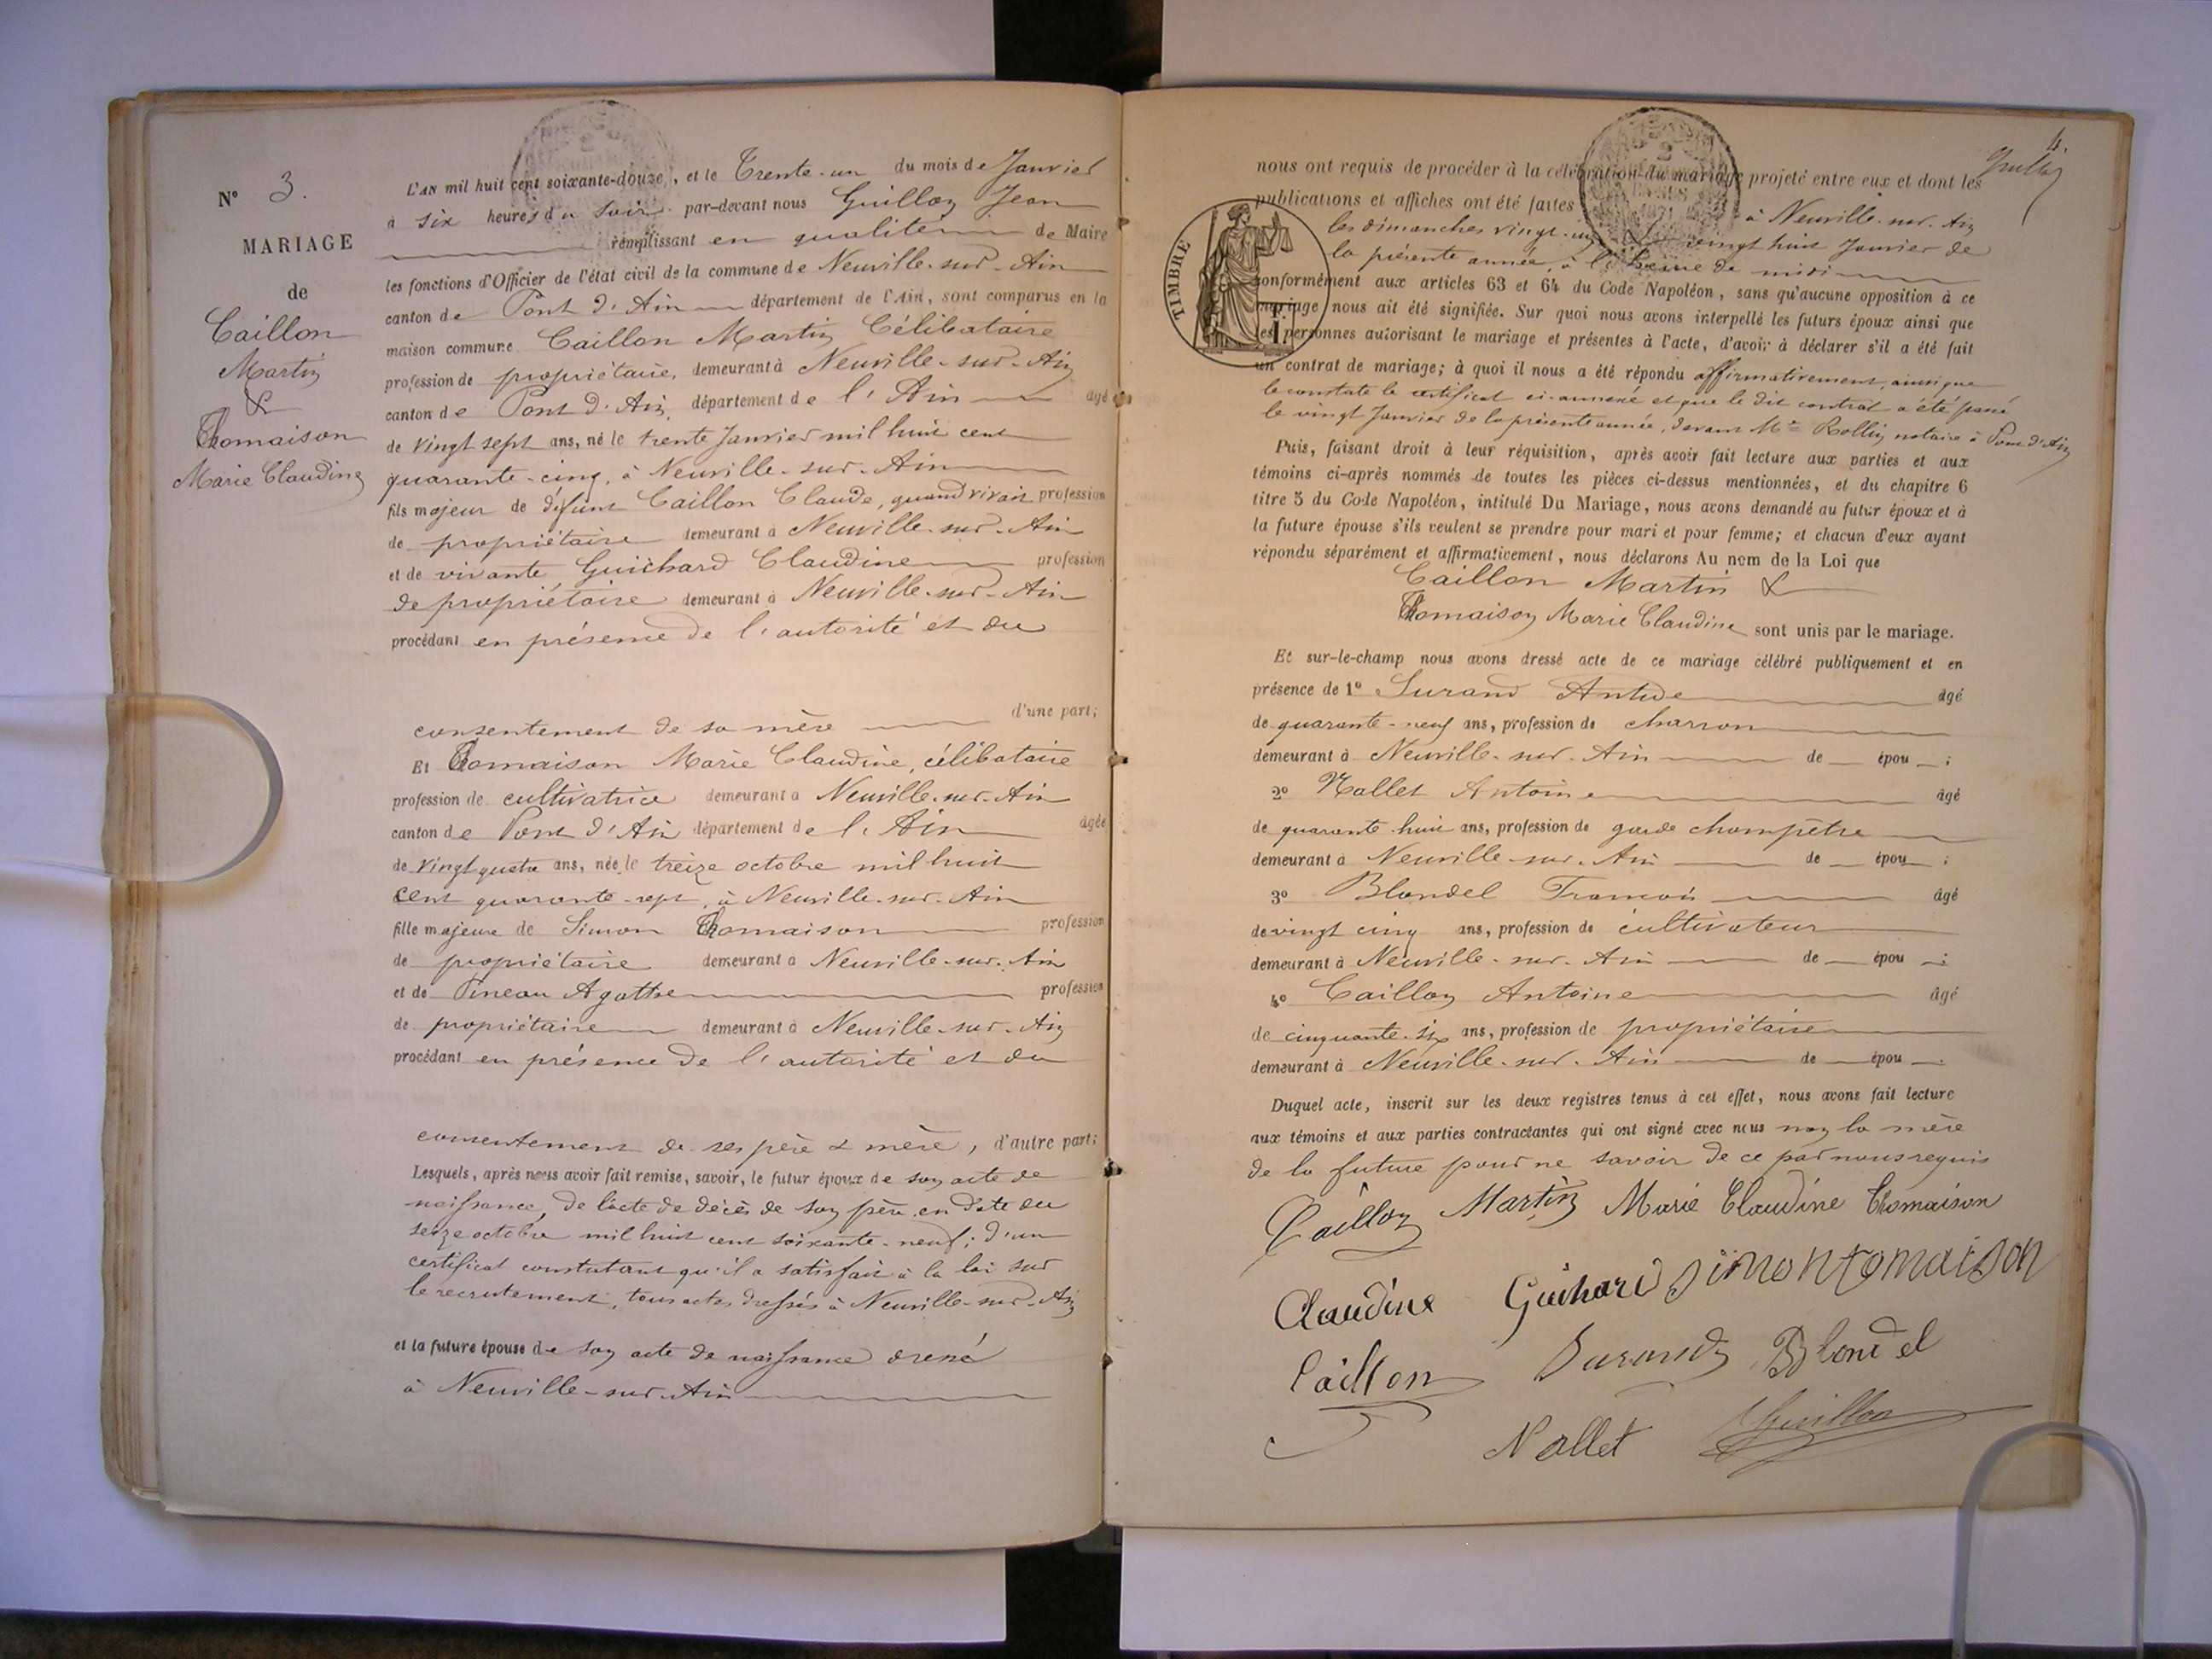 N° 3.
MARIAGE
de
Caillon
Martin
&
Thomaison
Marie Claudine
L'AN mil huit cent soixante-douze, et le Trente-un du mois de Janvier
à six heures du soir par-devant nous Guillon Jean
remplissant en qualité de Maire
les fonctions d'Officier de l'état civil de la commune de Neuville-sur-Ain
canton de Pont d'Ain département de l'Ain, sont comparus en la
maison commune Caillon Martin Célibataire
profession de propriétaire, demeurant à Neuville-sur-Ain
canton de Pont d'Ain, département de l'Ain âgé
de vingt sept ans, né le trente Janvier mil huit cent
quarante-cinq, à Neuville-sur-Ain
fils majeur de défunt Caillon Claude, quand vivait profession
de propriétaire demeurant à Neuville-sur-Ain
et de vivante Guichard Claudine profession
de propriétaire demeurant à Neuville-sur-Ain
procédant en présence de l'autorité et du
consentement de sa mère d'une part;
Et Thomaison Marie Claudine, célibataire
profession de cultivatrice demeurant à Neuville-sur-Ain
canton de Pont d'Ain département de l'Ain âgée
de vingt quatre ans, née le treize octobre mil huit
cent quarante-sept, à Neuville-sur-Ain
fille majeure de Simon Thomaison profession
de propriétaire demeurant à Neuville-sur-Ain
et de Pineau Agathe profession
de propriétaire demeurant à Neuville-sur-Ain
procédant en présence de l'autorité et du
consentement de ses père & mère, d'autre part;
Lesquels, après nous avoir fait remise, savoir, le futur époux de son acte de
naissance, de l'acte de décès de son père en date du
seize octobre mil huit cent soixante-neuf; d'un
certificat constatant qu'il a satisfait à la loi sur
le recrutement, tous actes dressés à Neuville-sur-Ain
et la future épouse de son acte de naissance dressé
à Neuville-sur-Ain
4.
Guillon
nous ont requis de procéder à la célébration du mariage projeté entre eux et dont les
publications et affiches ont été faites à Neuville-sur-Ain
les dimanches vingt-un & vingt huit Janvier de
la présente année, à l'heure de midi
conformément aux articles 63 et 64 du Code Napoléon, sans qu'aucune opposition à ce
mariage nous ait été signifiée. Sur quoi nous avons interpellé les futurs époux ainsi que
les personnes autorisant le mariage et présentes à l'acte, d'avoir à déclarer s'il a été fait
un contrat de mariage; à quoi il nous a été répondu affirmativement, ainsi que
le constate le certificat ci-annexé et que le dit contrat a été passé
le vingt Janvier de la présente année, devant Me Rollin notaire à Pont d'Ain
TIMBRE
Puis, faisant droit à leur réquisition, après avoir fait lecture aux parties et aux
témoins ci-après nommés de toutes les pièces ci-dessus mentionnées, et du chapitre 6
titre 5 du Code Napoléon, intitulé Du Mariage, nous avons demandé au futur époux et à
la future épouse s'ils veulent se prendre pour mari et pour femme; et chacun d'eux ayant
répondu séparément et affirmativement, nous déclarons Au nom de la Loi que
Caillon Martin &
Thomaison Marie Claudine sont unis par le mariage.
Et sur-le-champ nous avons dressé acte de ce mariage célébré publiquement et en
présence de 1° Durand Antide âgé
de quarante-neuf ans, profession de charron
demeurant à Neuville-sur-Ain de épou ;
2° Nallet Antoine âgé
de quarante huit ans, profession de garde champêtre
demeurant à Neuville-sur-Ain de épou ;
3° Blondel François âgé
de vingt cinq ans, profession de cultivateur
demeurant à Neuville-sur-Ain de épou ;
4° Caillon Antoine âgé
de cinquante-six ans, profession de propriétaire
demeurant à Neuville-sur-Ain de épou .
Duquel acte, inscrit sur les deux registres tenus à cet effet, nous avons fait lecture
aux témoins et aux parties contractantes qui ont signé avec nous non la mère
de la future pour ne savoir de ce par nous requis
Caillon Martin Marie Claudine Thomaison
Claudine Guichard Simon Tomaison
Caillon Durand Blondel
Nallet Guillon